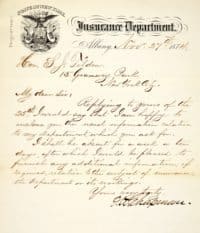 STATE OF NEW YORK
Insurance Department.
Albany, Nov. 27th 1874
Hon. S. J. Tilden
15 Gramercy Park
New York City.
My dear Sir:
Replying to yours of the
25th inst. I
am happy to
enclose you the
information
to my department which you ask for.
I shall be absent for a week or ten
days, after which I would be pleased to
furnish any additional information, if
required, relative to the subject of insurance
the department or its workings.
Yours